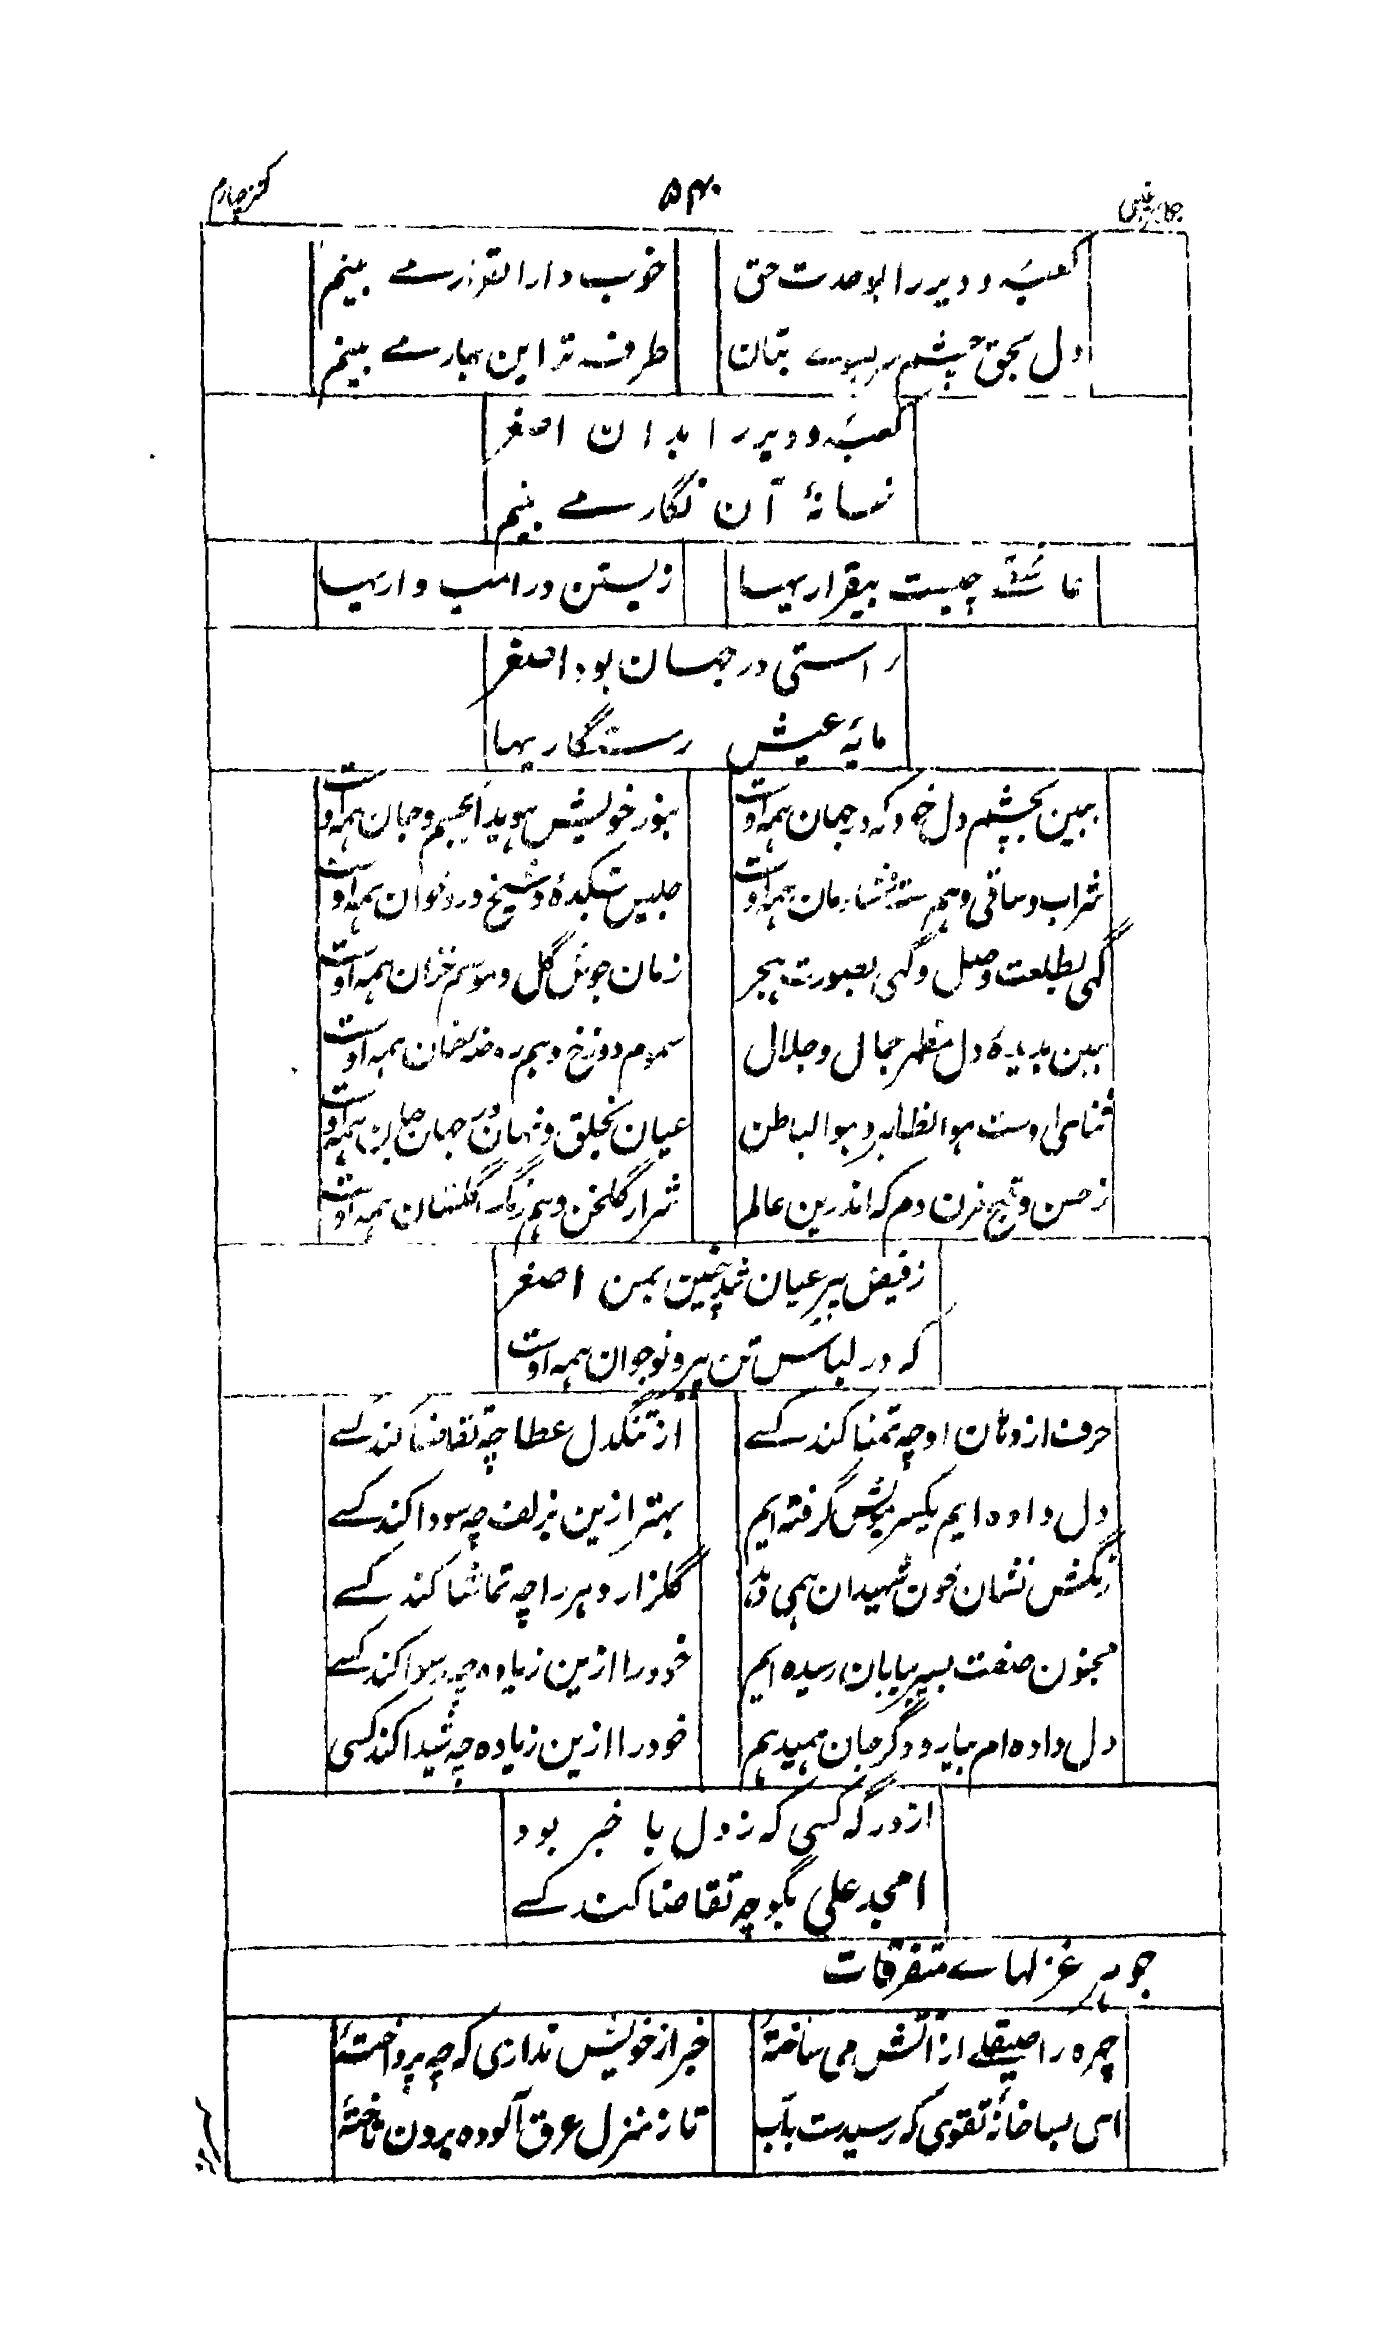 جواہر غیبی ۵۴۰ کنز چہارم
کعبہ و دیر را بوحدت حق خوب دار القرار مے بینم
دل بحق چشم سر بسوے بتان طرفہ تر این بہار مے بینم
کعبہ و دیر را بدان اصغر
خانۂ آن نگار مے بینم
عاشقی چیست بیقراریہا زیستن در امیدواریہا
راستی در جہان بود اصغر
مایۂ عیش رستگاریہا
ببین بچشم دل خود کہ در جہان ہمہ اوست بنور خویش ہویدا بجسم و جان ہمہ اوست
شراب و ساقی و ہم مست جلیس بتکدہ و شیخ ہمہ اوست
گہی بطلعت وصل و گہی بصورت ہجر زمان جوش گل و موسم خزان ہمہ اوست
ببین بدیدۂ دل مظہر جمال و جلال سموم دوزخ و ہم روضۂ جنان ہمہ اوست
ثنای اوست ہو الظاہر و ہو الباطن عیان بخلق و نہان در جہان جان ہمہ اوست
ز حسن و قبح مزن دم کہ اندرین عالم شرار گلخن و ہم رنگ گلستان ہمہ اوست
ز فیض پیر عیان شد چنین بمن اصغر
کہ در لباس تن پیر و نوجوان ہمہ اوست
حرف از دہان او چہ تمنا کند کسے از تنگدل عطا چہ تقاضا کند کسے
دل دادہ ایم یکسر مویش گرفتہ ایم بہتر ازین بزلف چہ سودا کند کسے
رنگش نشان خون شہیدان ہمی دہد گلزار دہر را چہ تماشا کند کسے
مجنون صفت بسیر بیابان رسیدہ ایم خود را ازین زیادہ چہ رسوا کند کسے
دل دادہ ام بیار و دگر جان ہمیدہم خود را ازین زیادہ چہ شیدا کند کسی
از درگہ کسی کہ ز دل با خبر بود
امجد علی بگو چہ تقاضا کند کسے
جوہر غزلہاے متفرقات
چہرہ را صیقلے از آتش می ساختۂ خبر از خویش نداری کہ چہ پرداختۂ
ای بسا خانۂ تقوی کہ رسیدست بآب تا ز منزل عرق آلودہ برون تاختۂ